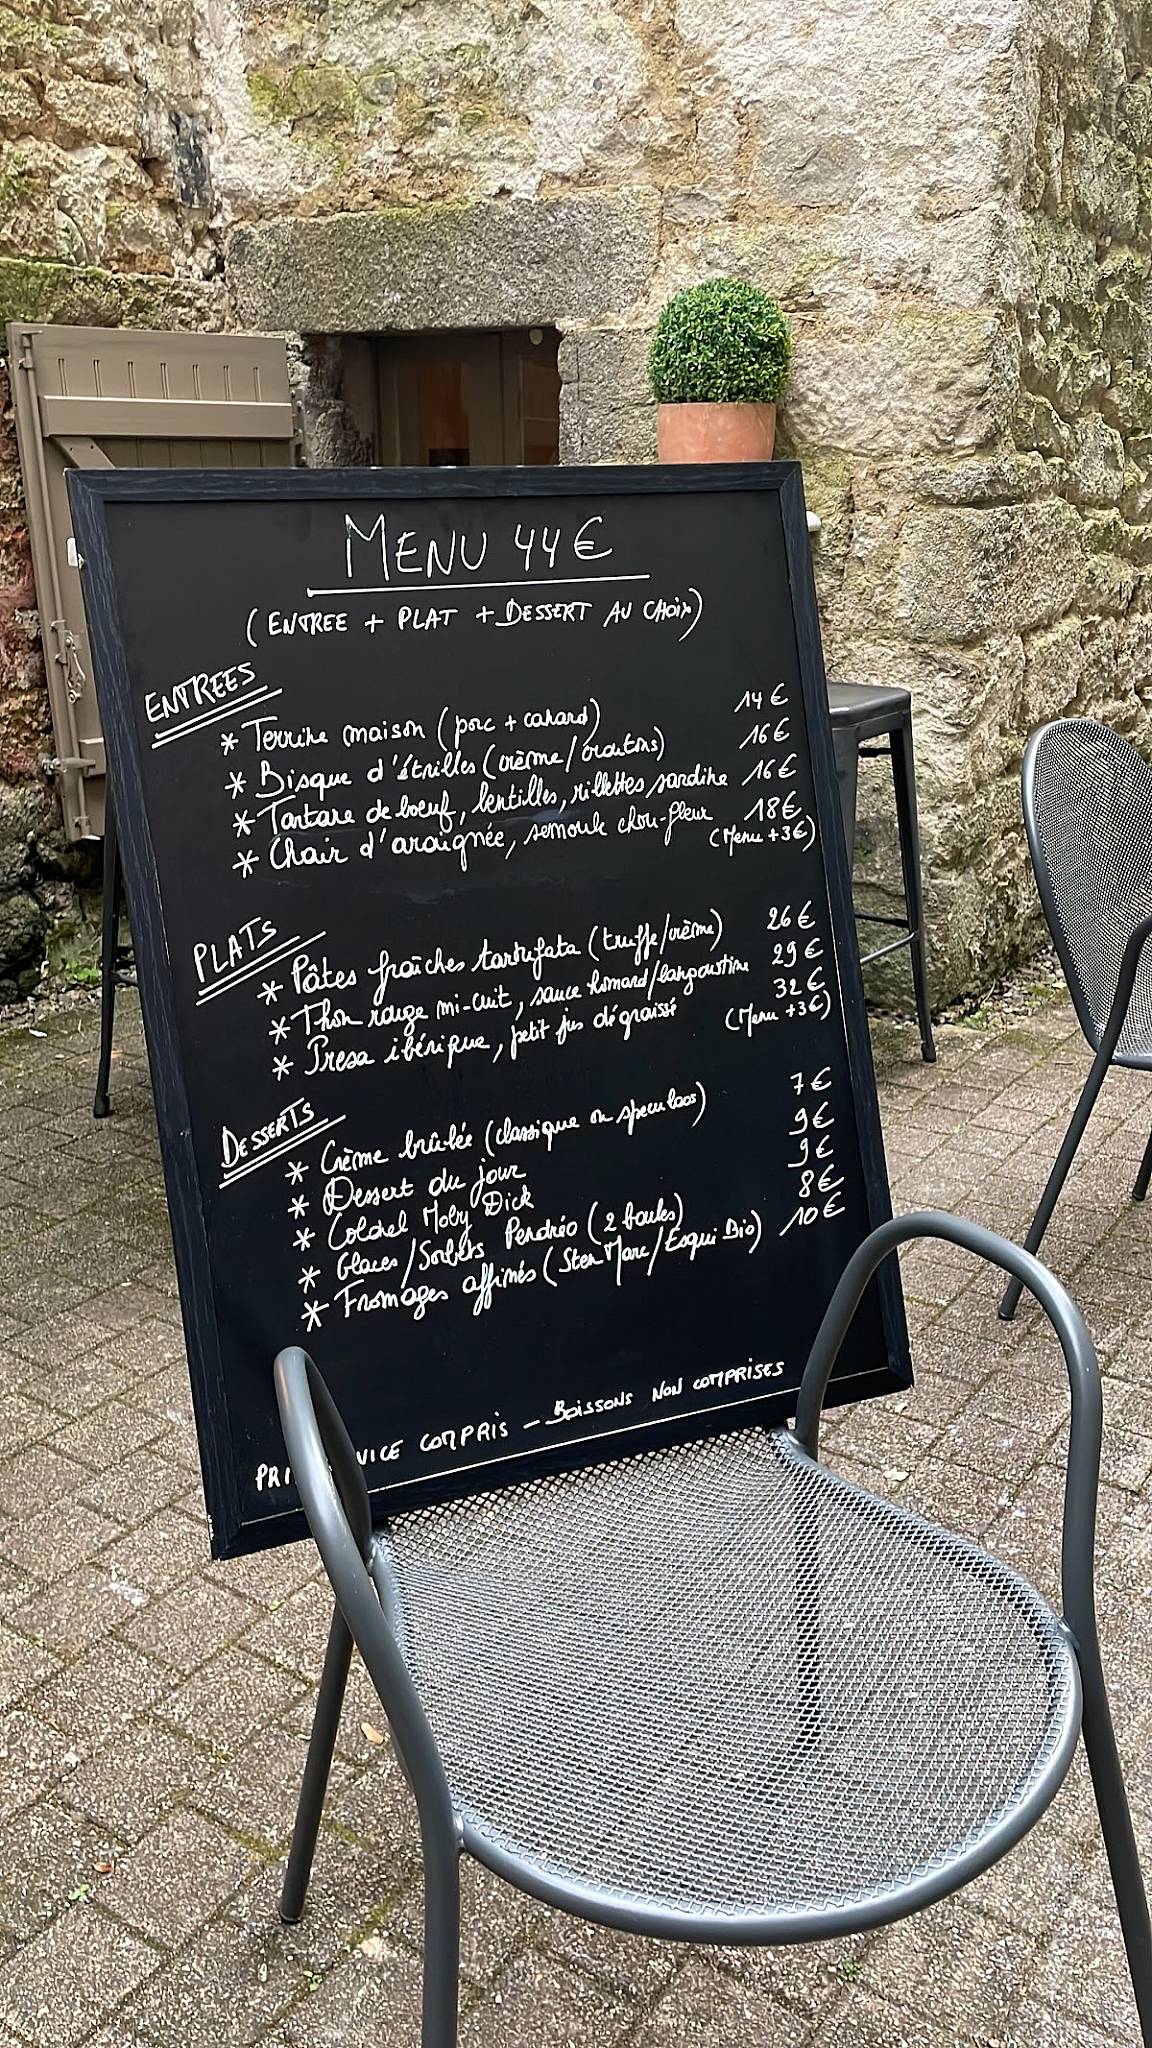 MENU 44€
(ENTREE + PLAT + DESSERT AU CHOIX)
ENTREES
* Terrine maison (porc + canard) 14€
* Bisque d'étrilles (crème/croutons) 16€
* Tartare de boeuf, lentilles, rillettes sardine 16€
* Chair d'araignée, semoule chou-fleur 18€
(Menu +3€)
PLATS
* Pâtes fraîches tartufata (truffe/crème) 26€
* Thon rouge mi-cuit, sauce homard/langoustine 29€
* Presa ibérique, petit jus dégraissé 32€
(Menu +3€)
DESSERTS
* Crème brûlée (classique ou speculoos) 7€
* Dessert du jour 9€
* Colonel Moby Dick 9€
* Glaces/Sorbets Pendréo (2 boules) 8€
* Fromages affinés (Ster Marc/Esqui Bio) 10€
PRI VICE COMPRIS - BOISSONS NON COMPRISES